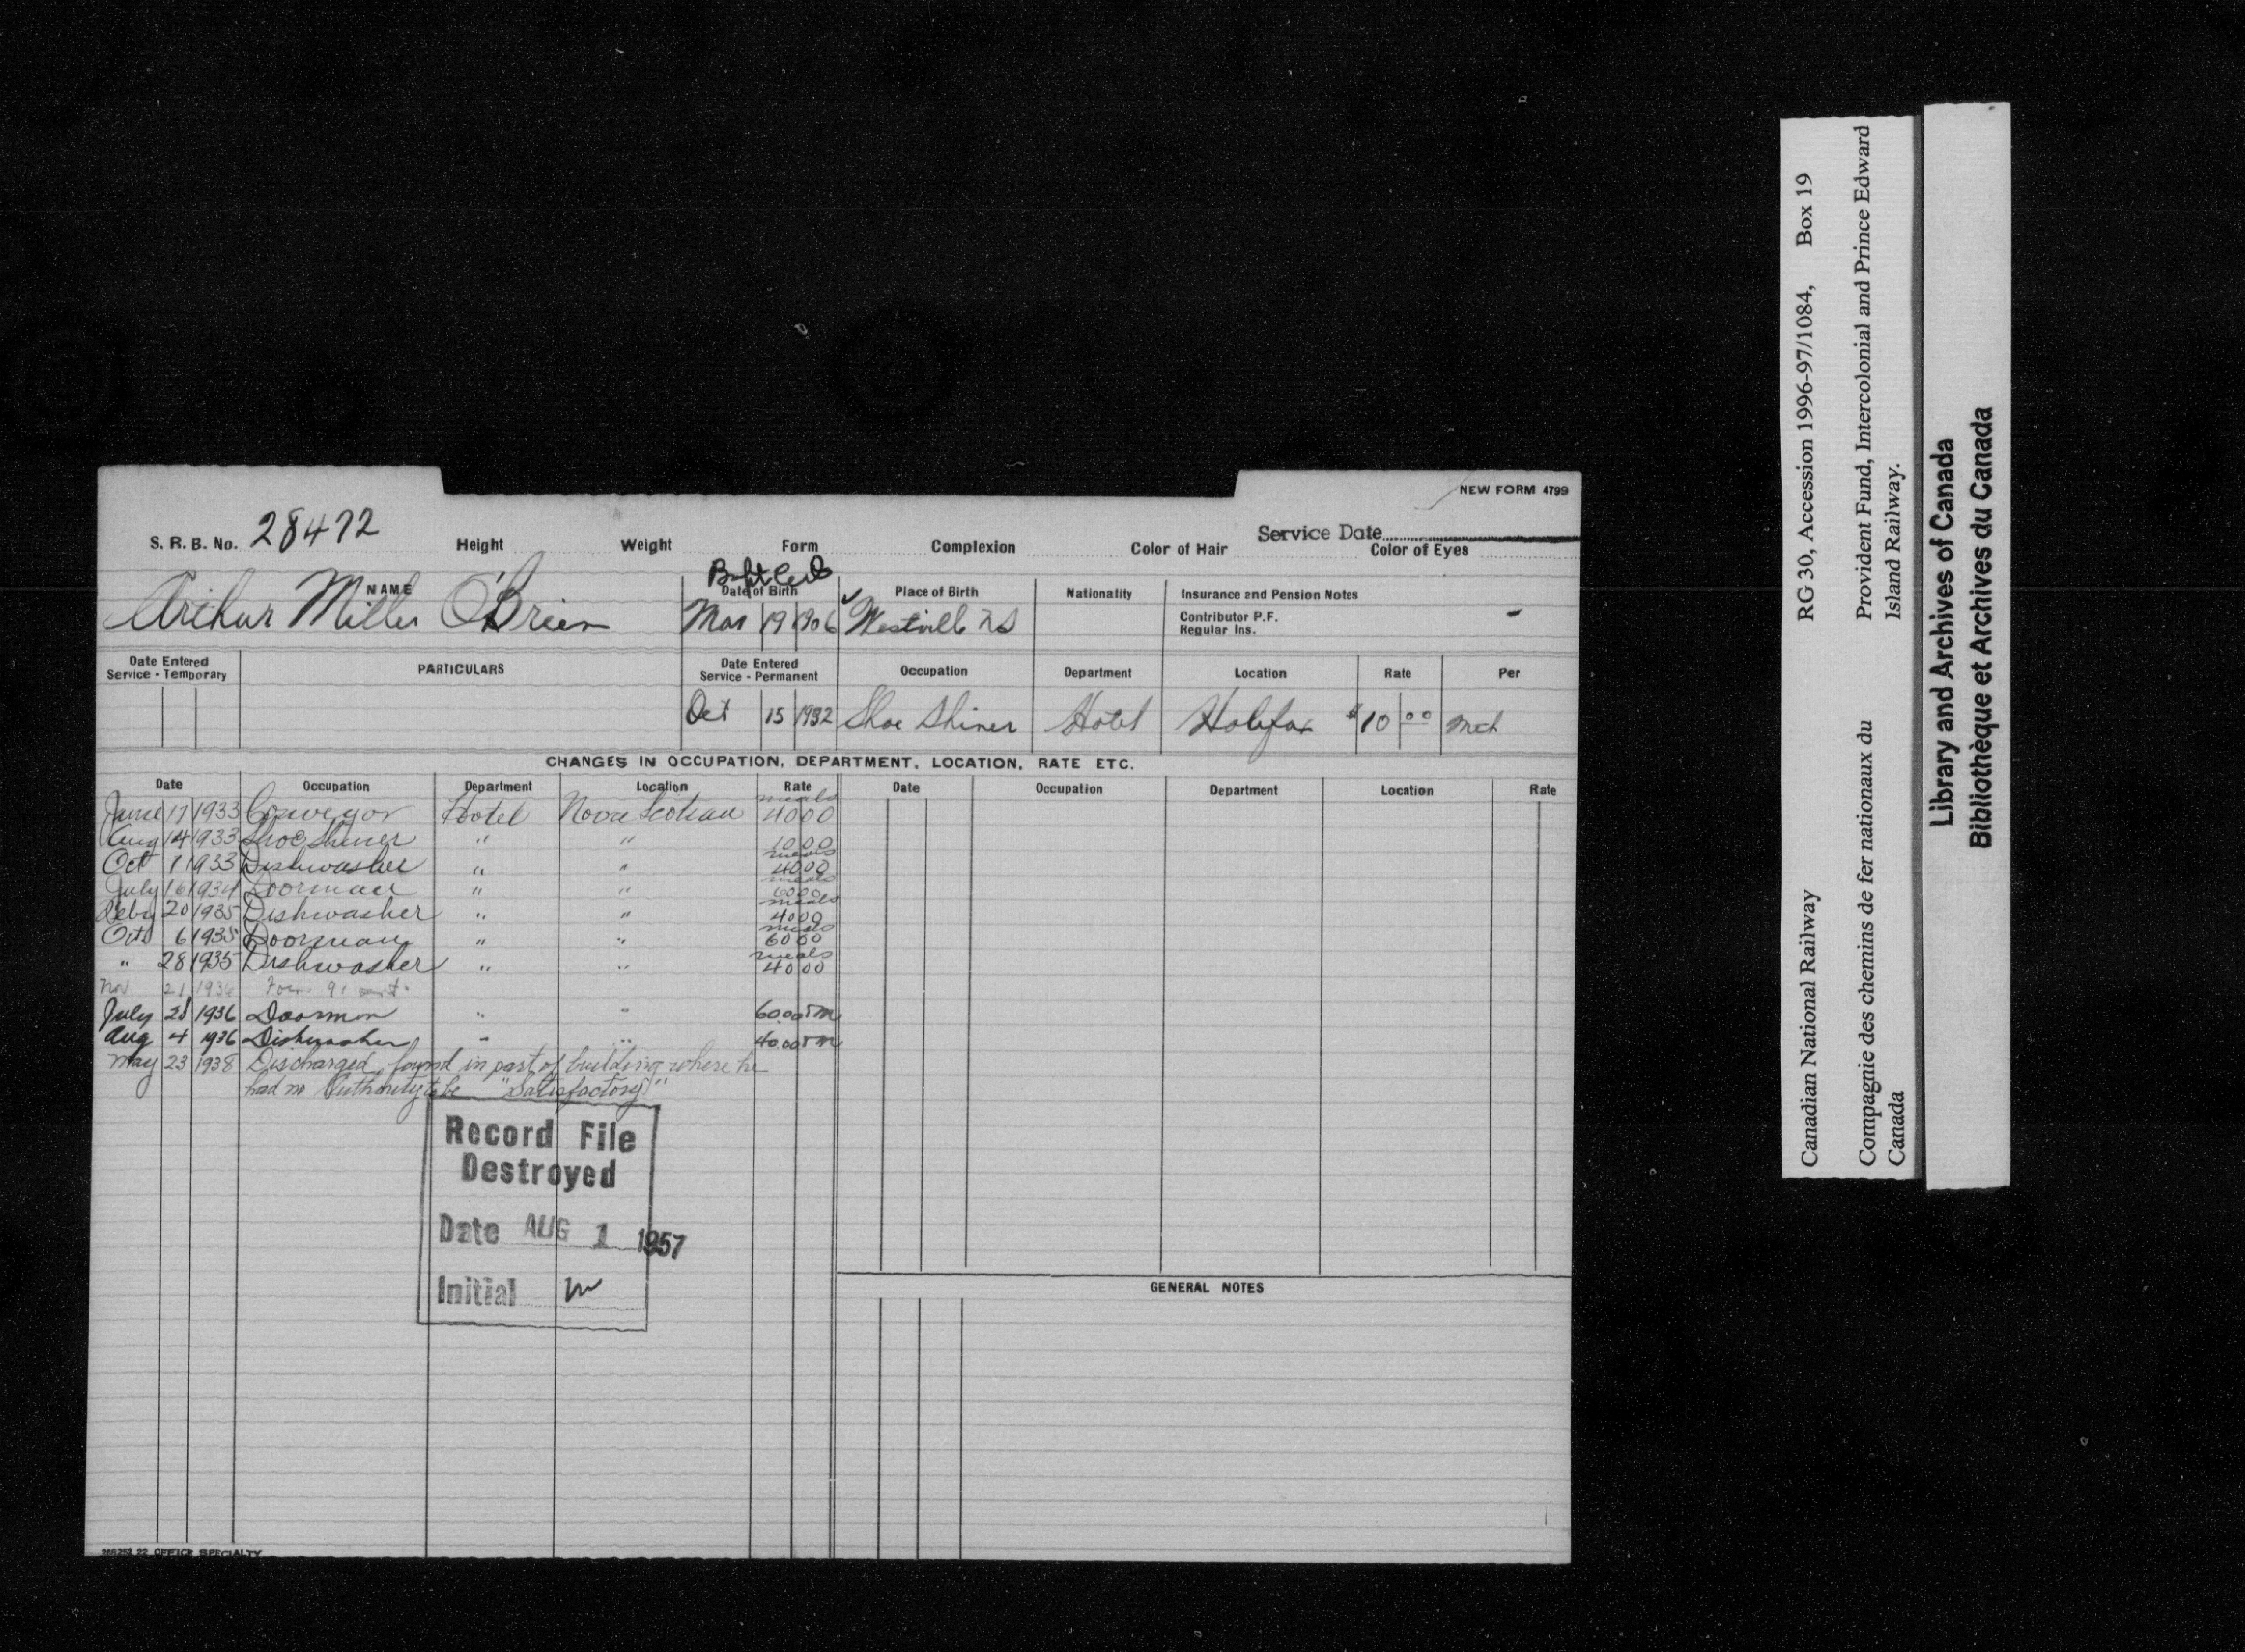 NEW FORM 4799
S. R. B. No. 28472
Service Date
Height Weight Form Complexion Color of Hair Color of Eyes
Bapt Cert
NAME Date of Birth Place of Birth Nationality Insurance and Pension Notes
Arthur Miller O'Brien Mar 19 1906 Westville NS Contributor P.F. -
Regular Ins.
Date Entered Service - Temporary PARTICULARS Date Entered Service - Permanent Occupation Department Location Rate Per
Oct 15 1932 Shoe Shiner Hotel Halifax $10 00 Mth
CHANGES IN OCCUPATION, DEPARTMENT, LOCATION, RATE ETC.
Date Occupation Department Location Rate Date Occupation Department Location Rate
meals
June 17 1933 Conveyor Hotel Nova Scotian 40 00
Aug 14 1933 Shoe Shiner " " 10 00
meals
Oct 1 1933 Dishwasher " " 40 00
meals
July 16 1934 Doorman " " 60 00
meals
Feby 20 1935 Dishwasher " " 40 00
meals
Oct 6 1935 Doorman " " 60 00
meals
" 28 1935 Dishwasher " " 40 00
Nov 21 1936 Form 91
July 28 1936 Doorman " " 60.00
Aug 4 1936 Dishwasher " " 40.00
May 23 1938 Discharged, found in part of building where he
had no Authority to be "Satisfactory"
Record File
Destroyed
Date AUG 1 1957
Initial
GENERAL NOTES
OFFICE SPECIALTY
Canadian National Railway RG 30, Accession 1996-97/1084, Box 19
Compagnie des chemins de fer nationaux du Provident Fund, Intercolonial and Prince Edward
Canada Island Railway.
Library and Archives of Canada
Bibliothèque et Archives du Canada